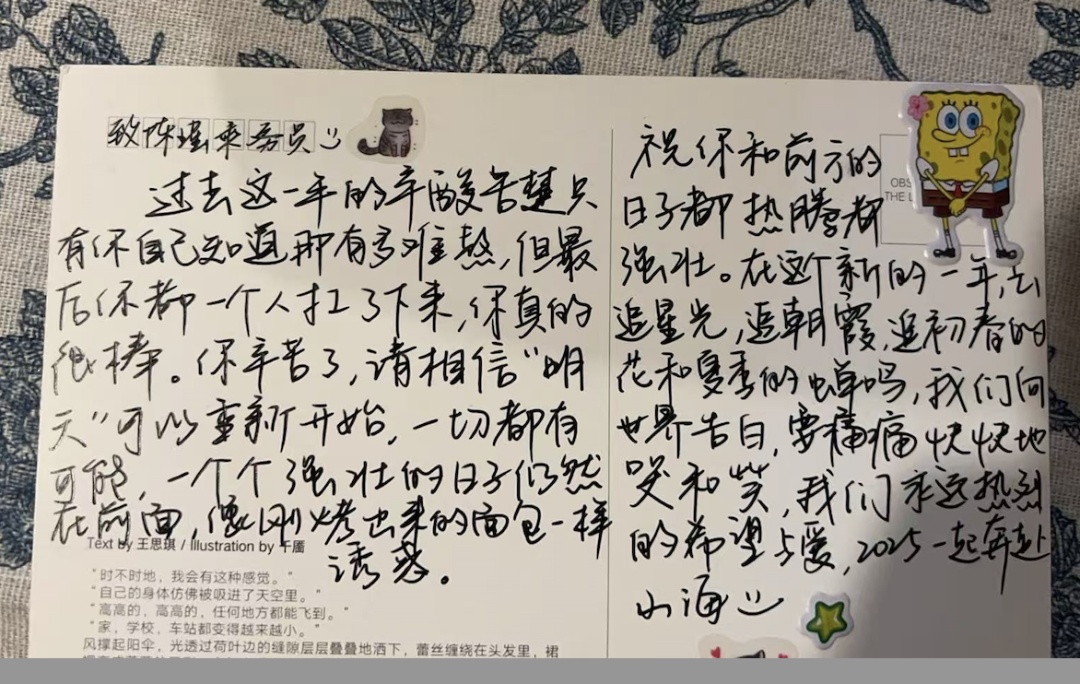 致陈瑶乘务员
过去这一年的辛酸苦楚只
有你自己知道那有多难熬,但最
后你都一个人扛了下来,你真的
很棒。你辛苦了,请相信“明
天”可以重新开始,一切都有
可能,一个个强壮的日子仍然
在前面,像刚烤出来的面包一样
诱惑。
Text by 王思琪 / Illustration by 千厘
“时不时地,我会有这种感觉。”
“自己的身体仿佛被吸进了天空里。”
“高高的,高高的,任何地方都能飞到。”
“家,学校,车站都变得越来越小。”
风撑起阳伞,光透过荷叶边的缝隙层层叠叠地洒下,蕾丝缠绕在头发里,裙
祝你和前方的
日子都热腾都
强壮。在这个新的一年,去
追星光,追朝霞,追初春的
花和夏季的蝉鸣,我们向
世界告白,要痛痛快快地
哭和笑,我们永远热烈
的希望与爱,2025一起奔赴
山海
OBS
THE L